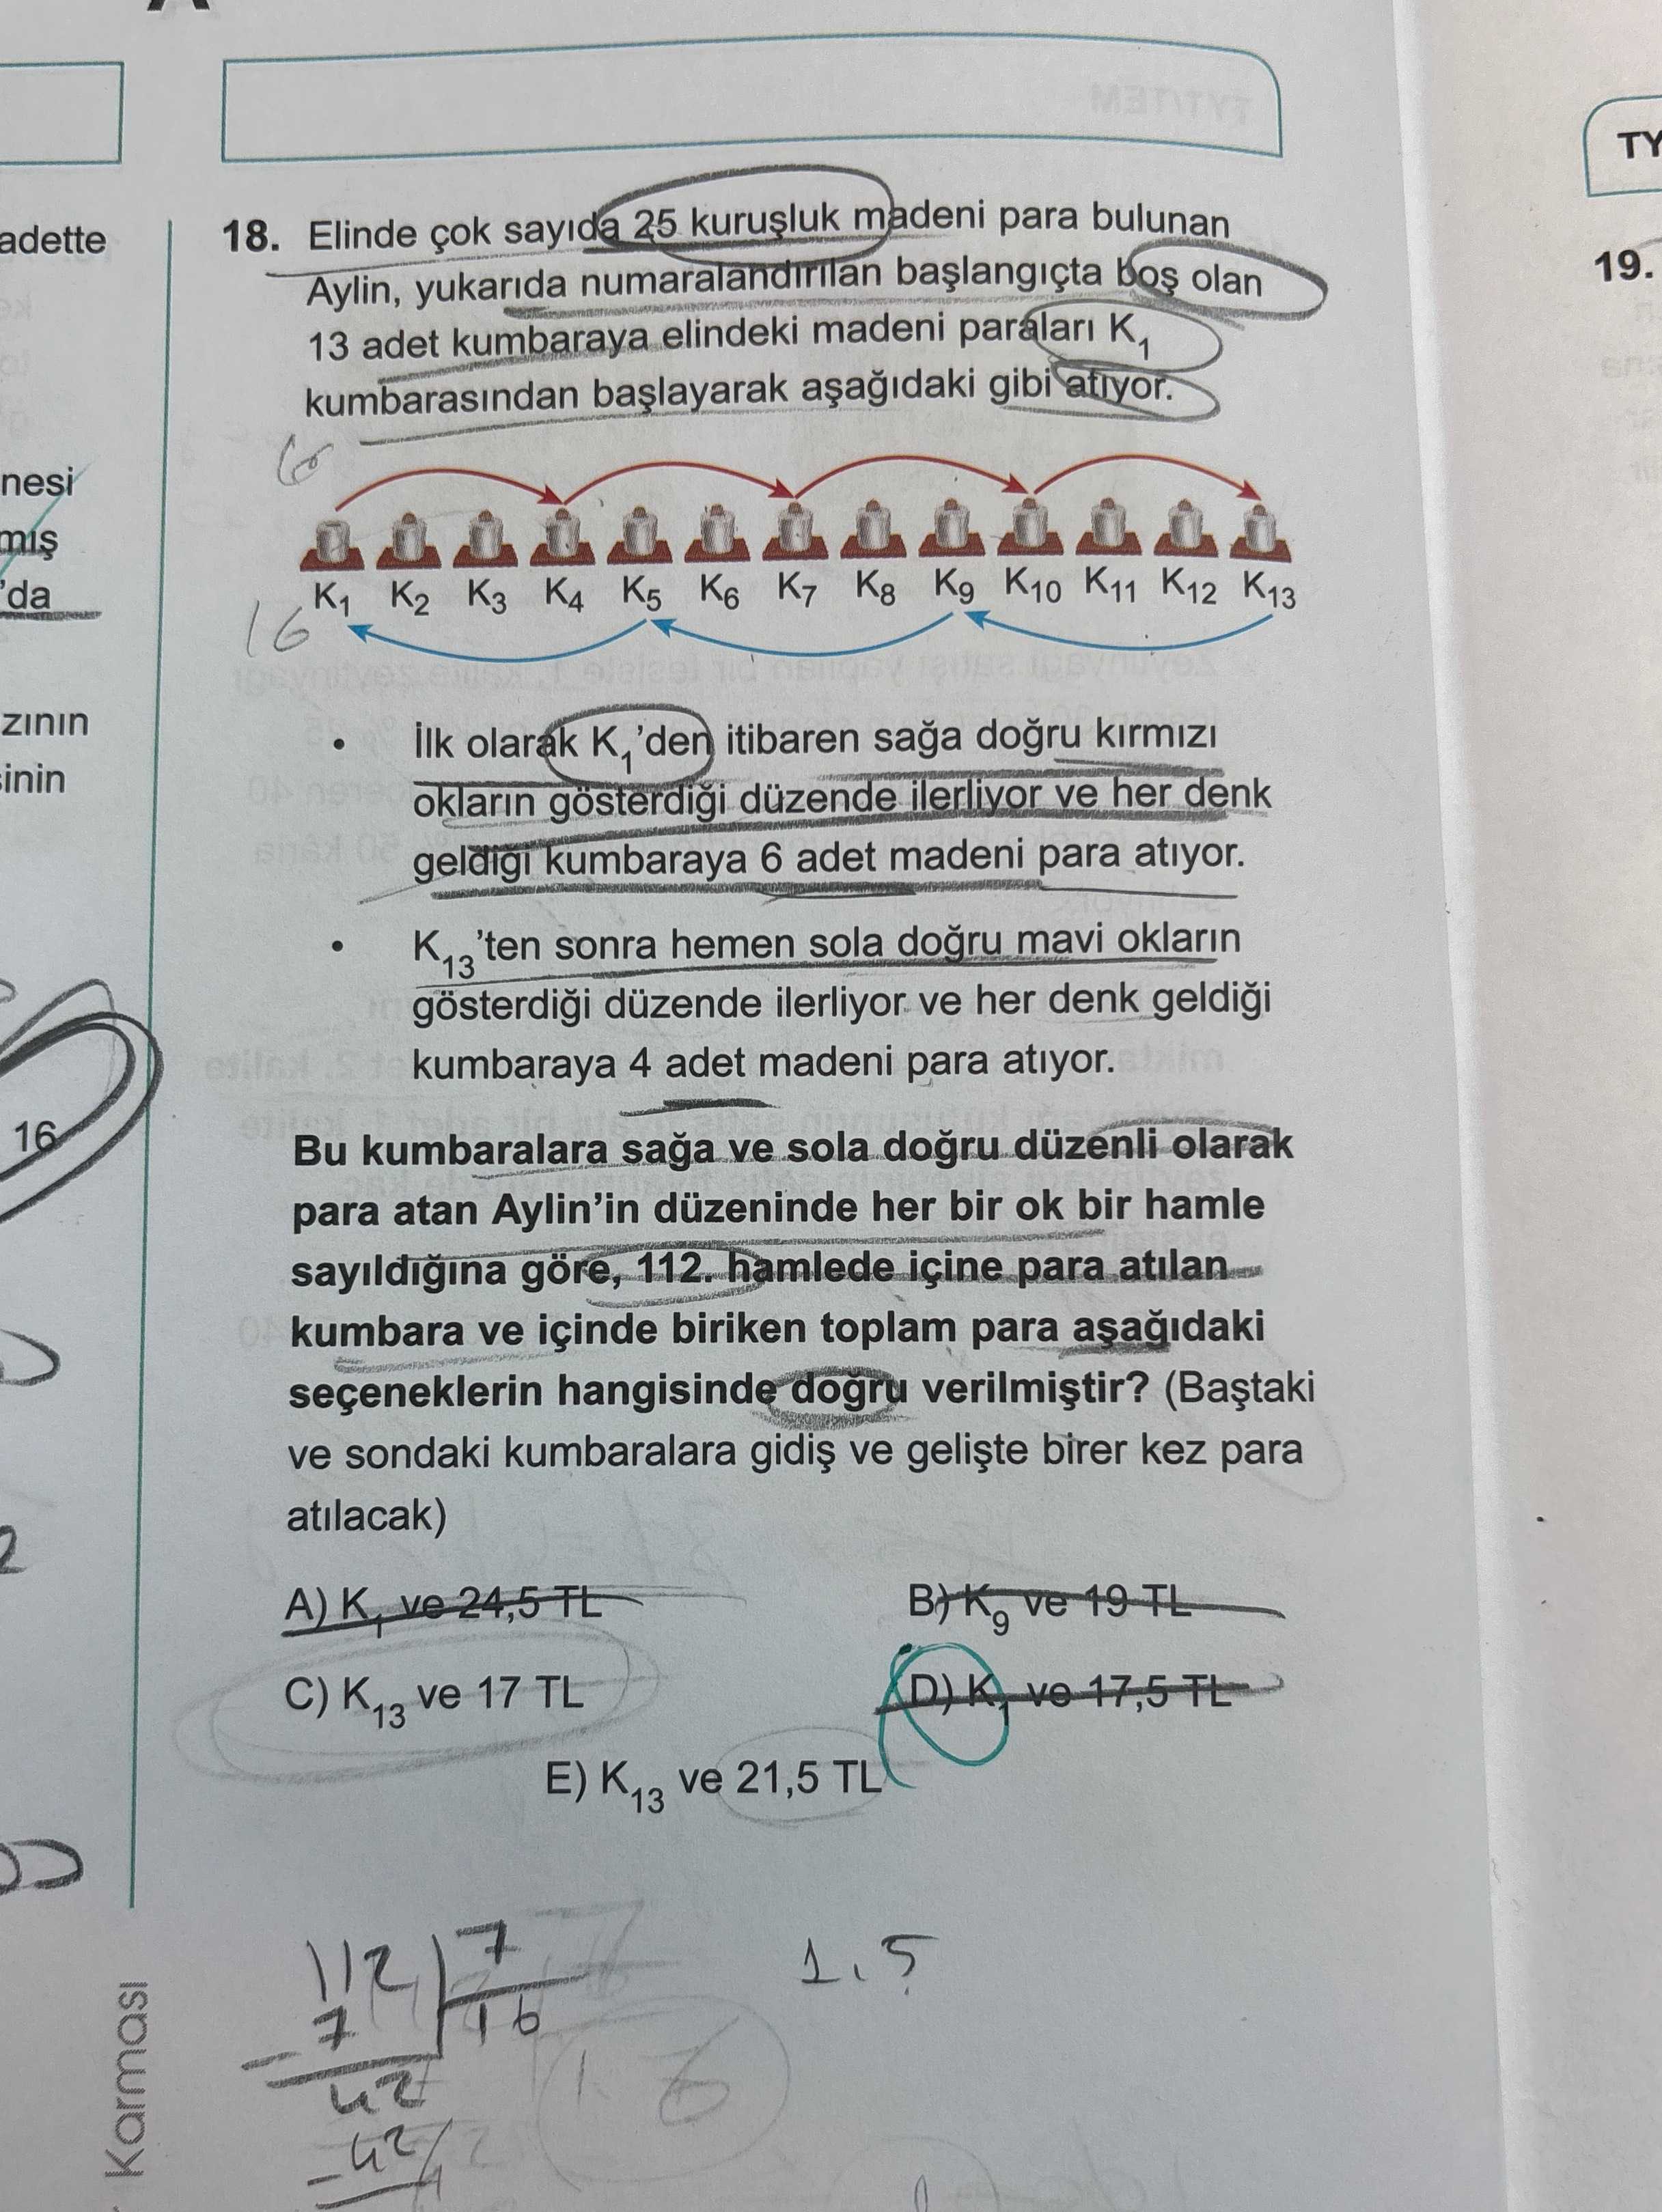 TYT/TEM
TY
adette
nesi
mış
'da
zının
sinin
16
2
18. Elinde çok sayıda 25 kuruşluk madeni para bulunan
Aylin, yukarıda numaralandırılan başlangıçta boş olan
13 adet kumbaraya elindeki madeni paraları K₁
kumbarasından başlayarak aşağıdaki gibi atıyor.
K₁ K₂ K₃ K₄ K₅ K₆ K₇ K₈ K₉ K₁₀ K₁₁ K₁₂ K₁₃
16
• İlk olarak K₁'den itibaren sağa doğru kırmızı
okların gösterdiği düzende ilerliyor ve her denk
geldiği kumbaraya 6 adet madeni para atıyor.
• K₁₃'ten sonra hemen sola doğru mavi okların
gösterdiği düzende ilerliyor ve her denk geldiği
kumbaraya 4 adet madeni para atıyor.
Bu kumbaralara sağa ve sola doğru düzenli olarak
para atan Aylin'in düzeninde her bir ok bir hamle
sayıldığına göre, 112. hamlede içine para atılan
kumbara ve içinde biriken toplam para aşağıdaki
seçeneklerin hangisinde doğru verilmiştir? (Baştaki
ve sondaki kumbaralara gidiş ve gelişte birer kez para
atılacak)
A) K₁ ve 24,5 TL B) K₉ ve 19 TL
C) K₁₃ ve 17 TL D) K₁ ve 17,5 TL
E) K₁₃ ve 21,5 TL
112 7
7 16
42
42
1.5
16
Karması
19.